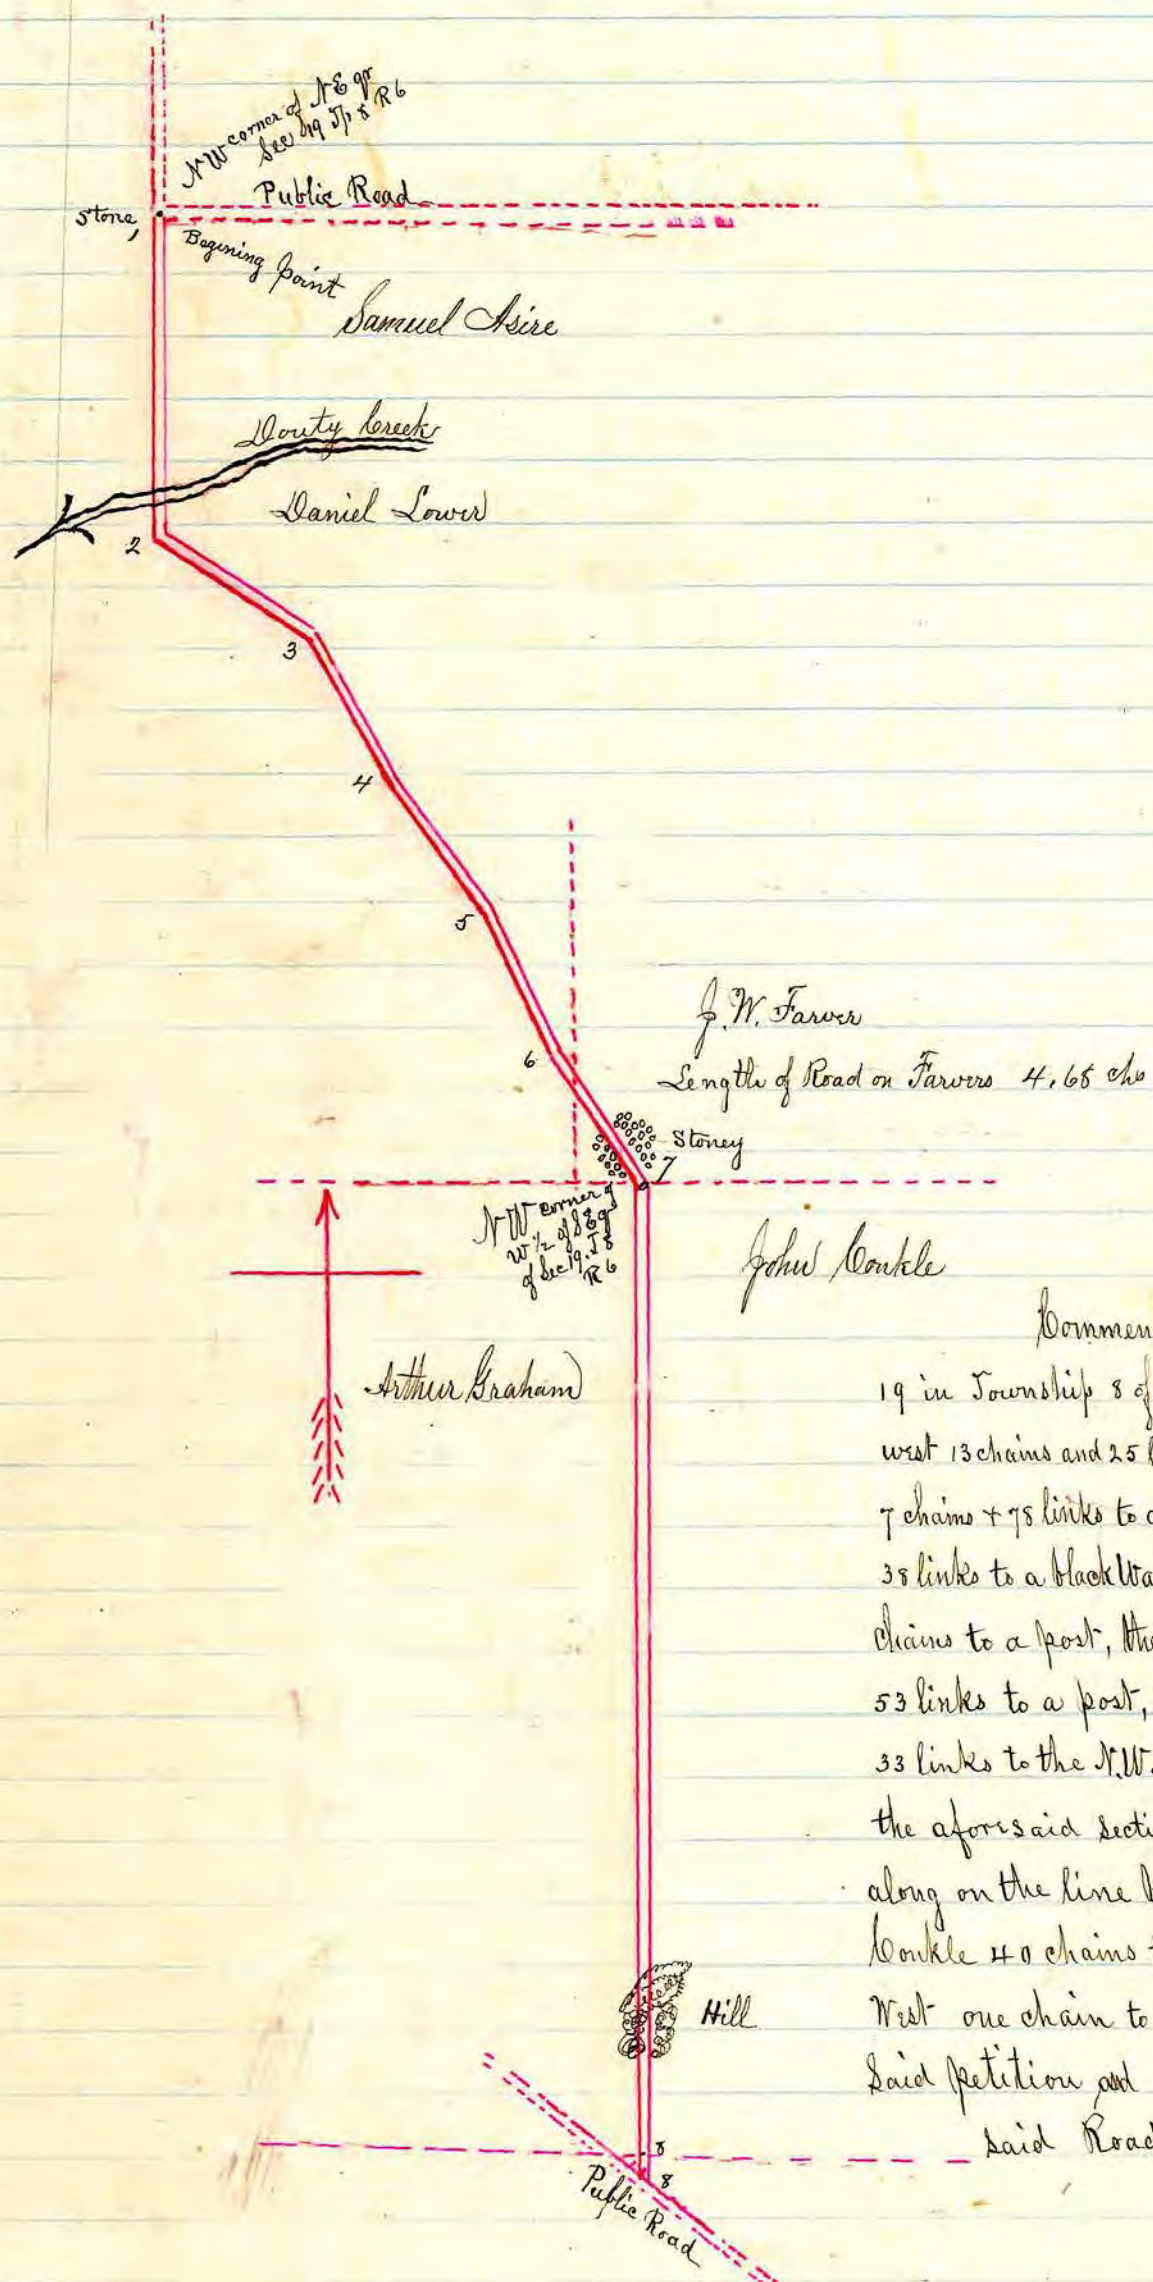 NW corner of NE qr
Sec 19 Tp 8 R 6
Public Road
Stone,
Begining point
Samuel Asire
Douty Creek
Daniel Lower
2
3
4
5
J. W. Farver
6
Length of Road on Farvers 4,68 chs
Stoney
7
NW corner of
W ½ of SE q
of Sec 19. T 8
R 6
John Conkle
Commen
Arthur Graham
19 in Township 8 of
west 13 chains and 25 l
7 chains + 78 links to a
38 links to a black Wa
chains to a post, the
53 links to a post,
33 links to the N.W.
the aforesaid Secti
along on the line b
Conkle 40 chains
Hill
West one chain to
Said petition and
said Road
8
8
Public Road